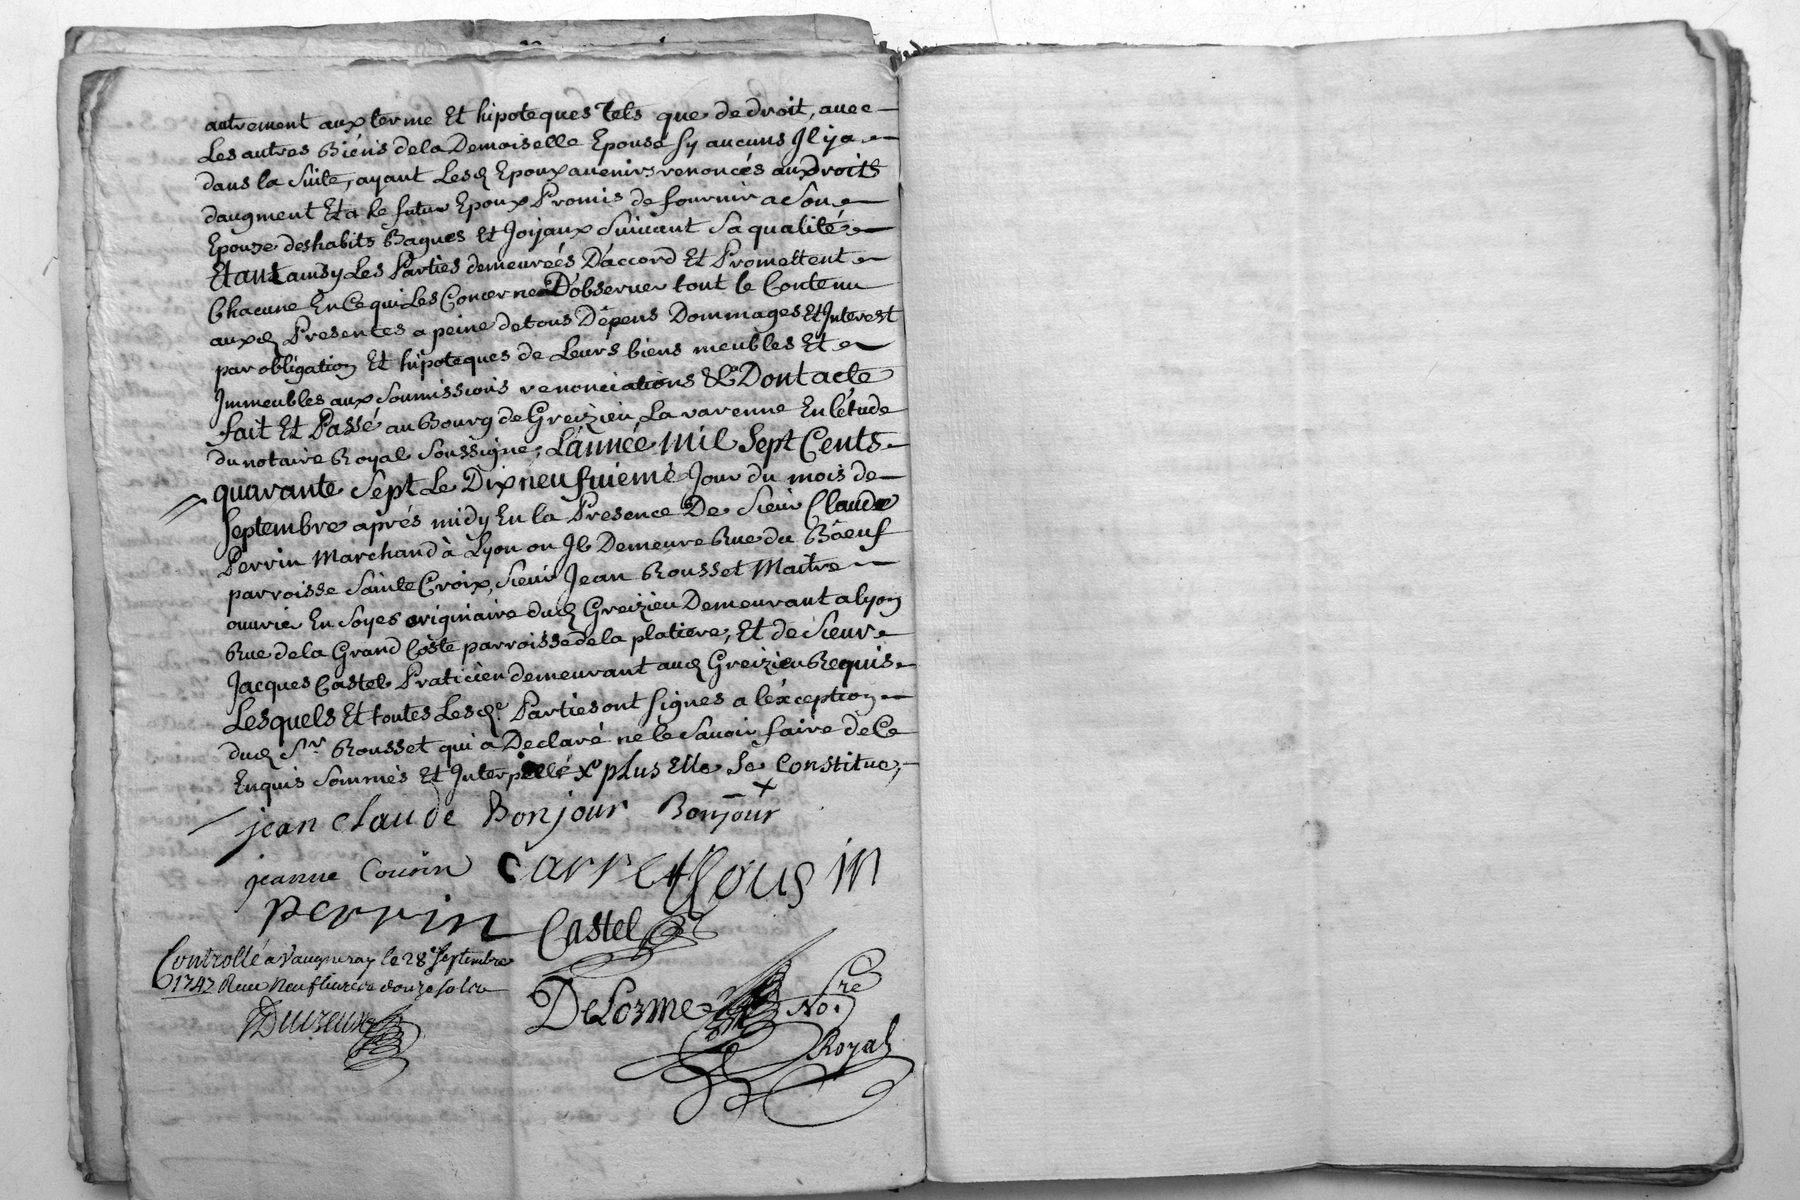 autrement aux terme Et hipoteques Tels que de droit, avec
Les autres Biens de la Demoiselle Epouse sy aucuns Il y a
dans la suite, ayant Lesd Epoux avenirs renoncés aux Droits
daugment Et a le futur Epoux Promis de fournir a Son
Epouze des habits Bagues Et Joijaux Suivant Sa qualité
Etant ainsy Les Parties demeureés D'accord Et Promettent
Chacune En Ce qui Les Concerne D'observer tout le Contenu
auxd Presentes a peine de tous Dépens Dommages Et Interest
par obligation Et hipoteques de Leurs biens meubles Et
Immeubles aux Soumissions renonciations &a Dont acte
fait Et Passé au Bourg de Greizieu La varenne En létude
du notaire Royal Soussigné, L'année Mil Sept Cents
quarante Sept Le Dix neufvieme Jour du mois de
Septembre aprés midy En la Presence De Sieur Claude
Perrin Marchand à Lyon ou Il Demeure Rue du Bâeuf
parroisse Sainte Croix, Sieur Jean Rousset Maitre
ouvrier En Soyes originaire dud Greizieu Demeurant a Lyon
Rue de la Grand Coste parroisse de la platiere, Et de Sieur
Jacques Castel Praticien demeurant aud Greizieu Requis
Lesquels Et toutes Lesde. Parties ont signes a l'éxception
dud Sr. Rousset qui a Declaré ne le Savoir faire de Ce
Enquis Sommés Et Interpellé X plus Elle Se Constitue,
jean claude Bonjour Bonjour
jeanne Cousin Carret Cousin
perrin Castel
Controllé a Vaugneray le 28e Septembre
1747 Reçu Neuf livres douze sols
DeLorme No.re
Royal
Ducreux